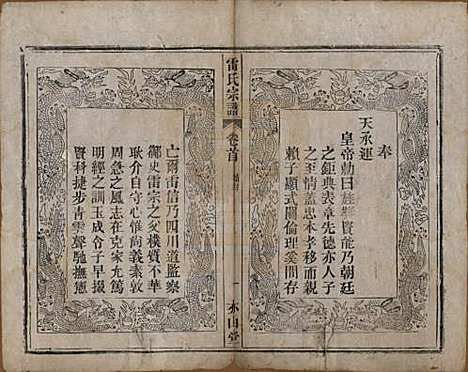 奉
天承運
皇帝勅曰旌舉賢能乃朝廷
之鉅典表章先德亦人子
之至情盖忠本孝移而親
賴子顯式闡倫理奚間存
雷氏宗譜
卷首
一
永山堂
亡爾雷信乃四川道監察
御史雷宗之父樸質不華
耿介自守心惟尚義素敦
周急之風志在克家允篤
明經之訓玉成令子早掇
賢科捷步青雲聲馳撫憲